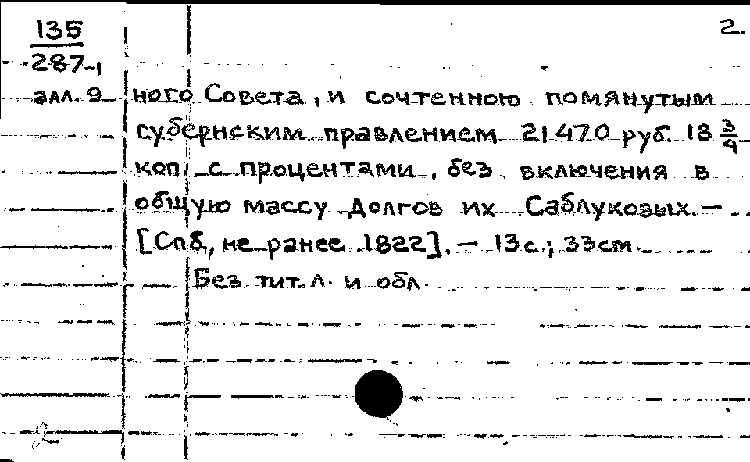 135
2.
287-1
алл. 9 ного Совета, и сочтенною помянутым
губернским правлением 21470 руб. 18 3/4
коп. с процентами, без включения в
общую массу долгов их Саблуковых. —
[Спб, не ранее 1822]. — 13с.; 33см.
Без тит. л. и обл.
2